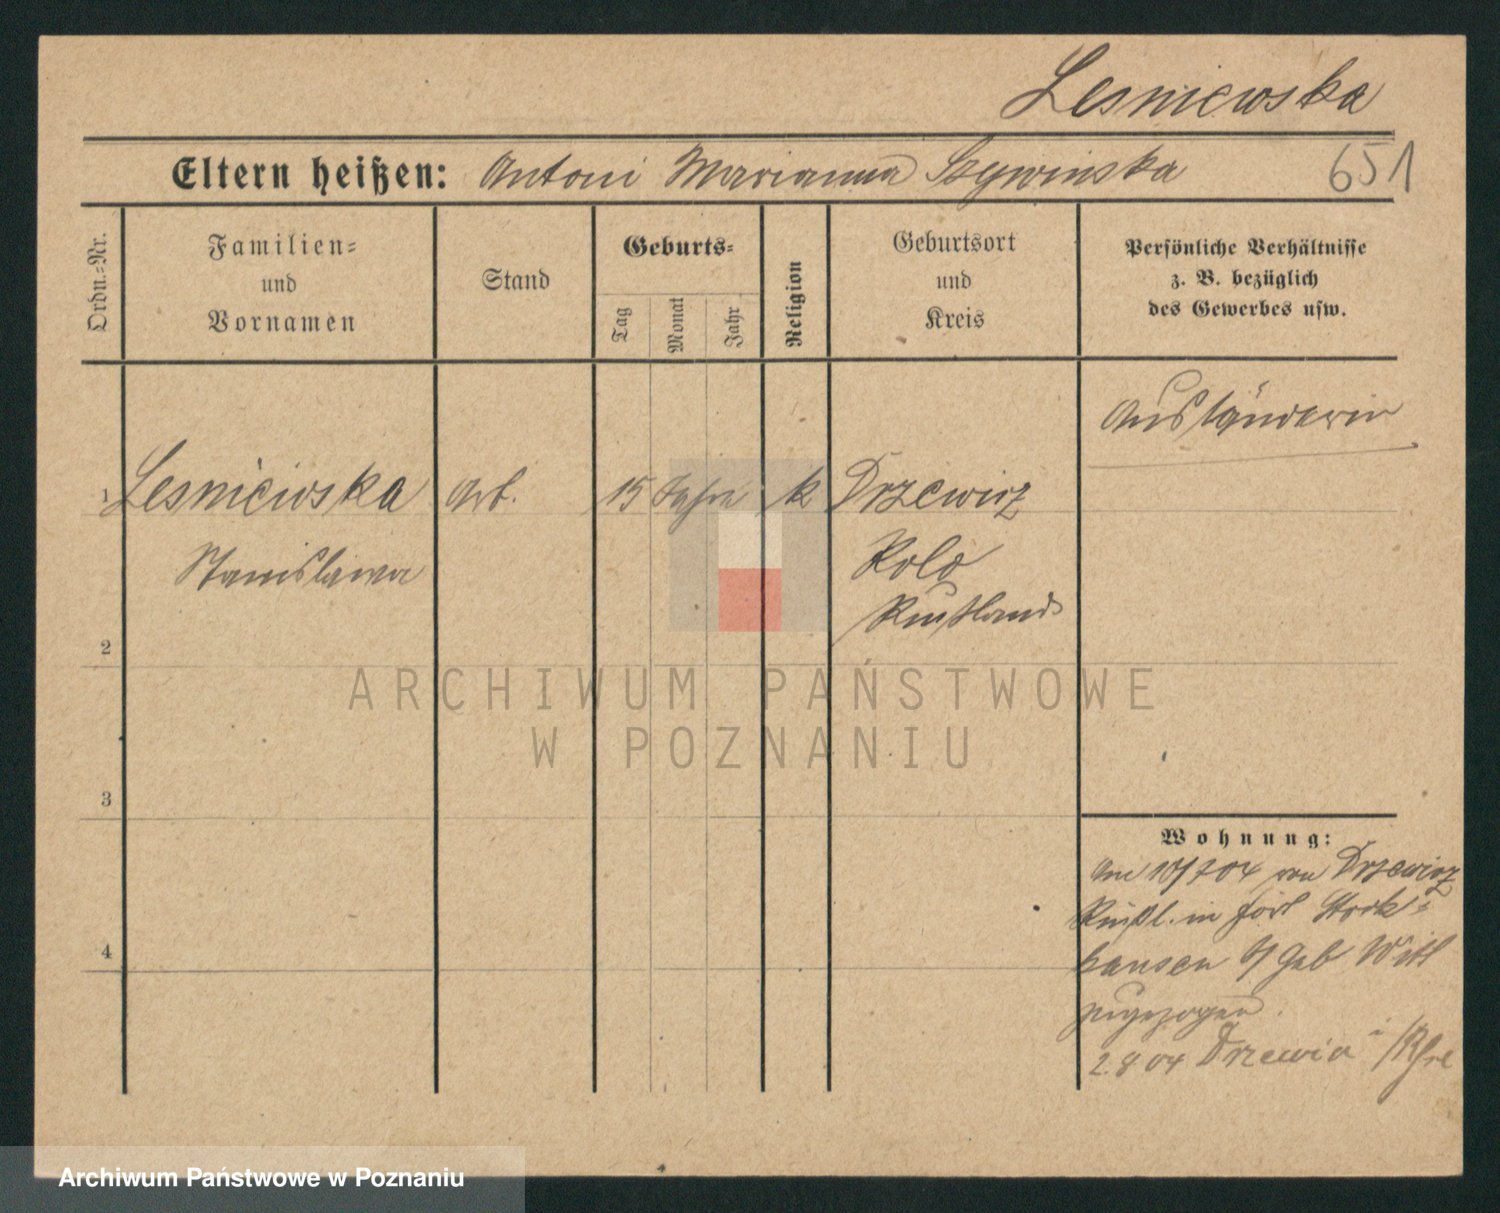 Lesniewska
Eltern heißen: Antoni Marianna Szywinska 651
Ordn.=Nr.
Familien=
und
Vornamen
Stand
Geburts=
Tag
Monat
Jahr
Religion
Geburtsort
und
Kreis
Persönliche Verhältnisse
z. B. bezüglich
des Gewerbes usw.
Ausländerin
1 Lesniewska Arb. 15 Jahre k Drzewicz
Stanislawa Kolo
Rußland
2
3
4
Wohnung:
Am 10/7 04 von Drzewicz
Rußl. in
hausen
zugezogen.
2.8 04 Drzewia
ARCHIWUM PAŃSTWOWE
W POZNANIU
Archiwum Państwowe w Poznaniu